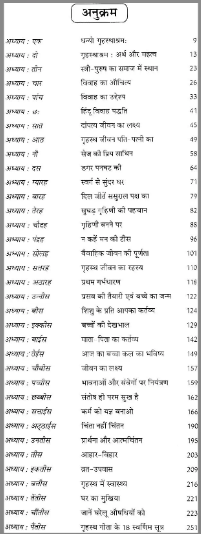 अनुक्रम
अध्याय : एक धन्यो गृहस्थाश्रम: 9
अध्याय : दो गृहस्थाश्रम : अर्थ और महत्व 13
अध्याय : तीन स्त्री-पुरुष का समाज में स्थान 23
अध्याय : चार विवाह का औचित्य 26
अध्याय : पांच विवाह का उद्देश्य 33
अध्याय : छ: हिंदू विवाह पद्धति 41
अध्याय : सात दांपत्य जीवन का लक्ष्य 45
अध्याय : आठ गृहस्थ जीवन पति-पत्नी का 49
अध्याय : नौ सेज की प्रिय संगिन 58
अध्याय : दस डगर पनघट की 64
अध्याय : ग्यारह स्वर्ग से सुंदर घर 71
अध्याय : बारह दिल जीतें ससुराल पक्ष का 79
अध्याय : तेरह सुघड़ गृहिणी की पहचान 82
अध्याय : चौदह गृहिणी बनने पर 88
अध्याय : पंद्रह न कहें मन की टीस 96
अध्याय : सोलह वैवाहिक जीवन की पूर्णता 101
अध्याय : सत्रह गृहस्थ जीवन का रहस्य 110
अध्याय : अठारह प्रथम गर्भधारण 116
अध्याय : उन्नीस प्रसव की तैयारी एवं बच्चे का जन्म 122
अध्याय : बीस शिशु के प्रति आपका कर्तव्य 124
अध्याय : इक्कीस बच्चों की देखभाल 129
अध्याय : बाईस माता-पिता का कर्तव्य 142
अध्याय : तेईस आज का बच्चा कल का भविष्य 149
अध्याय : चौबीस जीवन का लक्ष्य 157
अध्याय : पच्चीस भावनाओं और संवेगों पर नियंत्रण 159
अध्याय : छब्बीस संतोष ही परम सुख है 162
अध्याय : सत्ताईस कर्म को यज्ञ बनाओ 166
अध्याय : अट्ठाईस चिंता नहीं चिंतन 190
अध्याय : उनतीस प्रार्थना और आत्मचिंतन 195
अध्याय : तीस आहार-विहार 203
अध्याय : इकतीस व्रत-उपवास 209
अध्याय : बत्तीस गृहस्थ में स्वास्थ्य 216
अध्याय : तैंतीस घर का मुखिया 221
अध्याय : चौंतीस जानें घरेलू औषधियों को 223
अध्याय : पैंतीस गृहस्थ गीता के 18 स्वर्णिम सूत्र 251